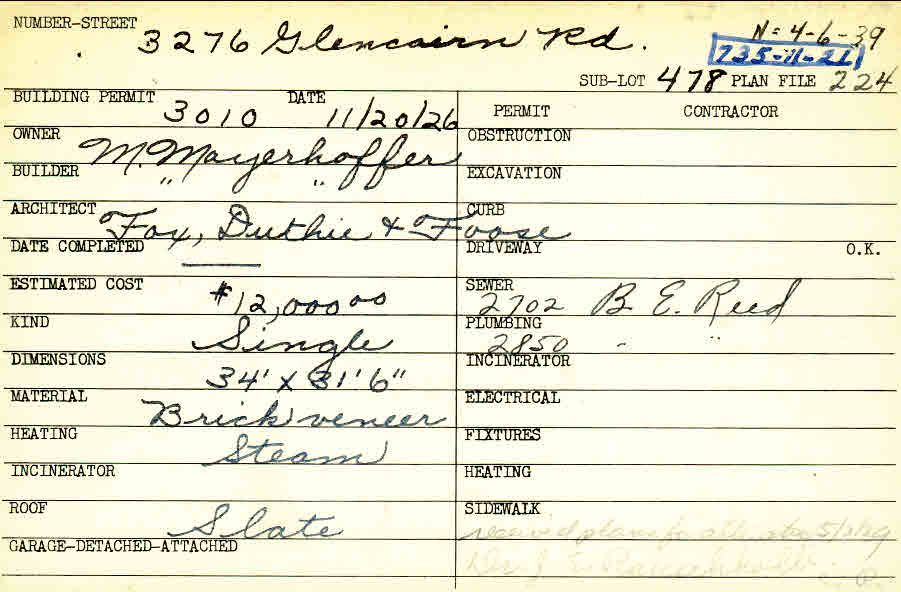 NUMBER-STREET 3276 Glencairn Rd. N=4-6-39
735-11-21
SUB-LOT 478 PLAN FILE 224
BUILDING PERMIT 3010 DATE 11/20/26
PERMIT CONTRACTOR
OWNER M. Mayerhoffer
OBSTRUCTION
BUILDER " "
EXCAVATION
ARCHITECT Fox, Duthie & Foose
CURB
DATE COMPLETED —
DRIVEWAY O.K.
ESTIMATED COST $12,000.00
SEWER 2702 B. E. Reed
KIND Single
PLUMBING 2850 " "
DIMENSIONS 34' X 31'6"
INCINERATOR
MATERIAL Brick veneer
ELECTRICAL
HEATING Steam
FIXTURES
INCINERATOR
HEATING
ROOF Slate
SIDEWALK
received plans for 5/3/29
GARAGE-DETACHED-ATTACHED